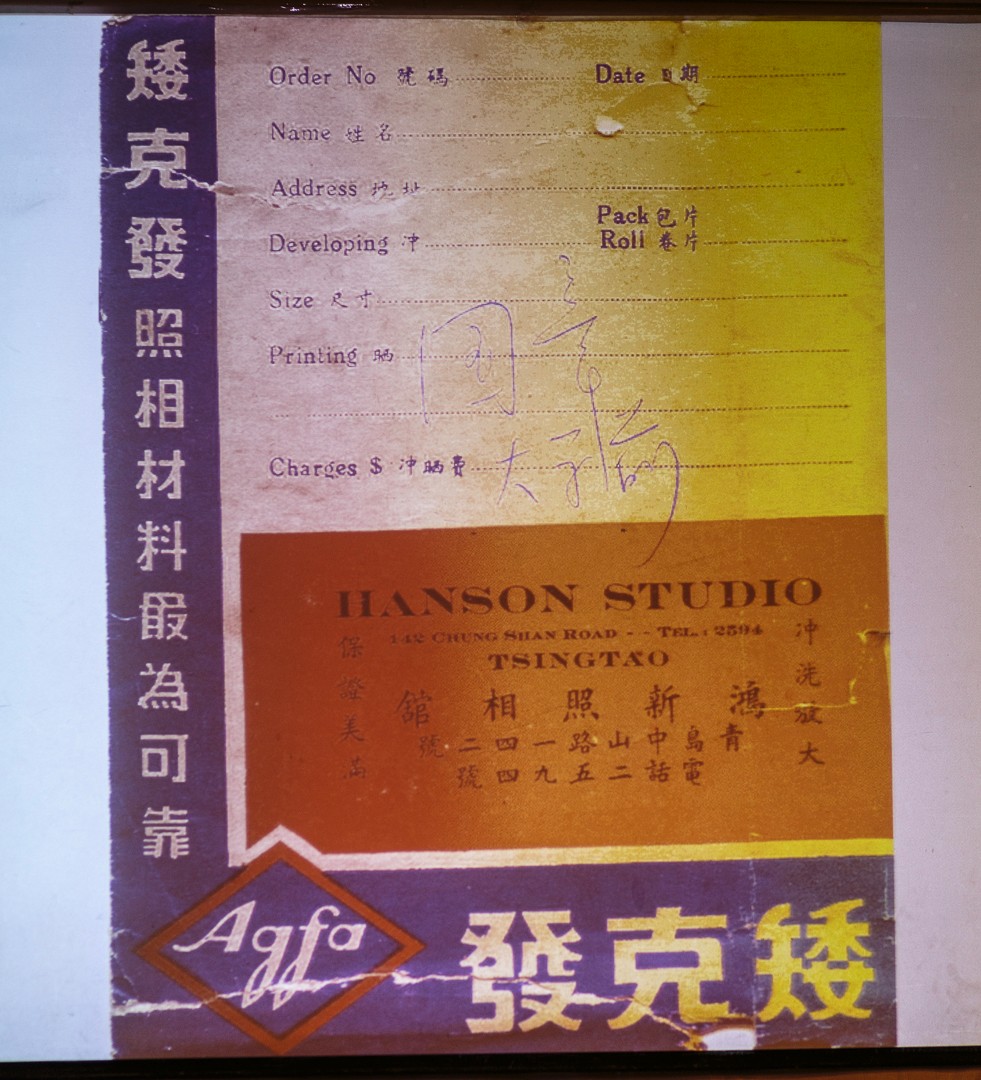 矮克發照相材料最為可靠
Order No 號碼 Date 日期
Name 姓名
Address 地址
Pack 包片
Developing 冲 Roll 卷片
Size 尺寸
Printing 晒
Charges $ 冲晒費
HANSON STUDIO
142 CHUNG SHAN ROAD - - TEL.: 2594
TSINGTAO
冲洗發大
保證美滿
鴻新照相舘
青島中山路一四二號
電話二五九四號
Agfa
矮克發